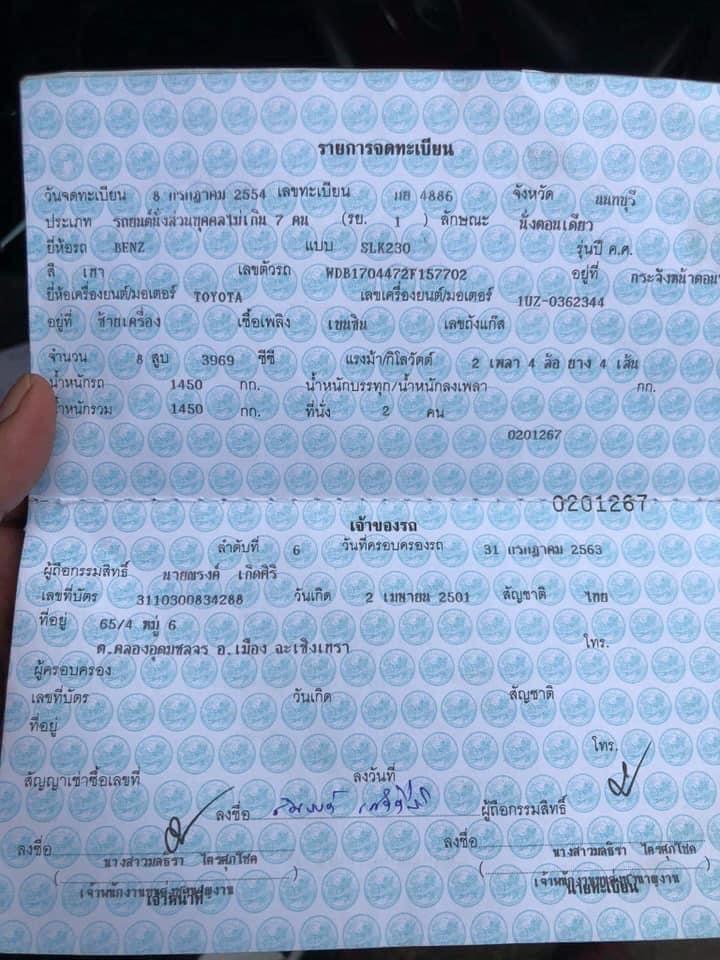 รายการจดทะเบียน
วันจดทะเบียน 8 กรกฎาคม 2554 เลขทะเบียน 4886 จังหวัด นนทบุรี
ประเภท รถยนต์นั่งส่วนบุคคลไม่เกิน 7 คน (รย. 1 ) ลักษณะ นั่งตอนเดียว
ยี่ห้อรถ BENZ แบบ SLK230 รุ่นปี ค.ศ.
สี เทา เลขตัวรถ WDB1704472F157702 อยู่ที่ กระจังหน้าตอน
ยี่ห้อเครื่องยนต์/มอเตอร์ TOYOTA เลขเครื่องยนต์/มอเตอร์ 1UZ-0362344
อยู่ที่ ซ้ายเครื่อง เชื้อเพลิง เบนซิน เลขถังแก๊ส
จำนวน 8 สูบ 3969 ซีซี แรงม้า/กิโลวัตต์ 2 เพลา 4 ล้อ ยาง 4 เส้น
น้ำหนักรถ 1450 กก. น้ำหนักบรรทุก/น้ำหนักลงเพลา กก.
น้ำหนักรวม 1450 กก. ที่นั่ง 2 คน
0201267
0201267
เจ้าของรถ
ลำดับที่ 6 วันที่ครอบครองรถ 31 กรกฎาคม 2563
ผู้ถือกรรมสิทธิ์ นายณรงค์ เกิดศิริ
เลขที่บัตร 3110300834288 วันเกิด 2 เมษายน 2501 สัญชาติ ไทย
ที่อยู่ 65/4 หมู่ 6
ต.คลองอุดมชลจร อ.เมือง ฉะเชิงเทรา โทร.
ผู้ครอบครอง
เลขที่บัตร วันเกิด สัญชาติ
ที่อยู่
โทร.
สัญญาเช่าซื้อเลขที่ ลงวันที่
ลงชื่อ ผู้ถือกรรมสิทธิ์
ลงชื่อ ลงชื่อ
( นางสาวมลธิรา ไตรศุภโชค ) ( นางสาวมลธิรา ไตรศุภโชค )
เจ้าหน้าที่ นายทะเบียน